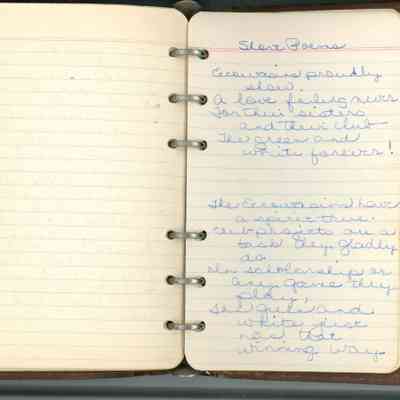 Short Poems
Ecowasins proudly
show.
A love failing never
For their sisters
and their club
The green and
white forever!
The Ecowasins have
a spirit true.
Club projects are a
task they gladly
do.
In scholarship or
any game they
play,
The green and
white just
has that
winning way.